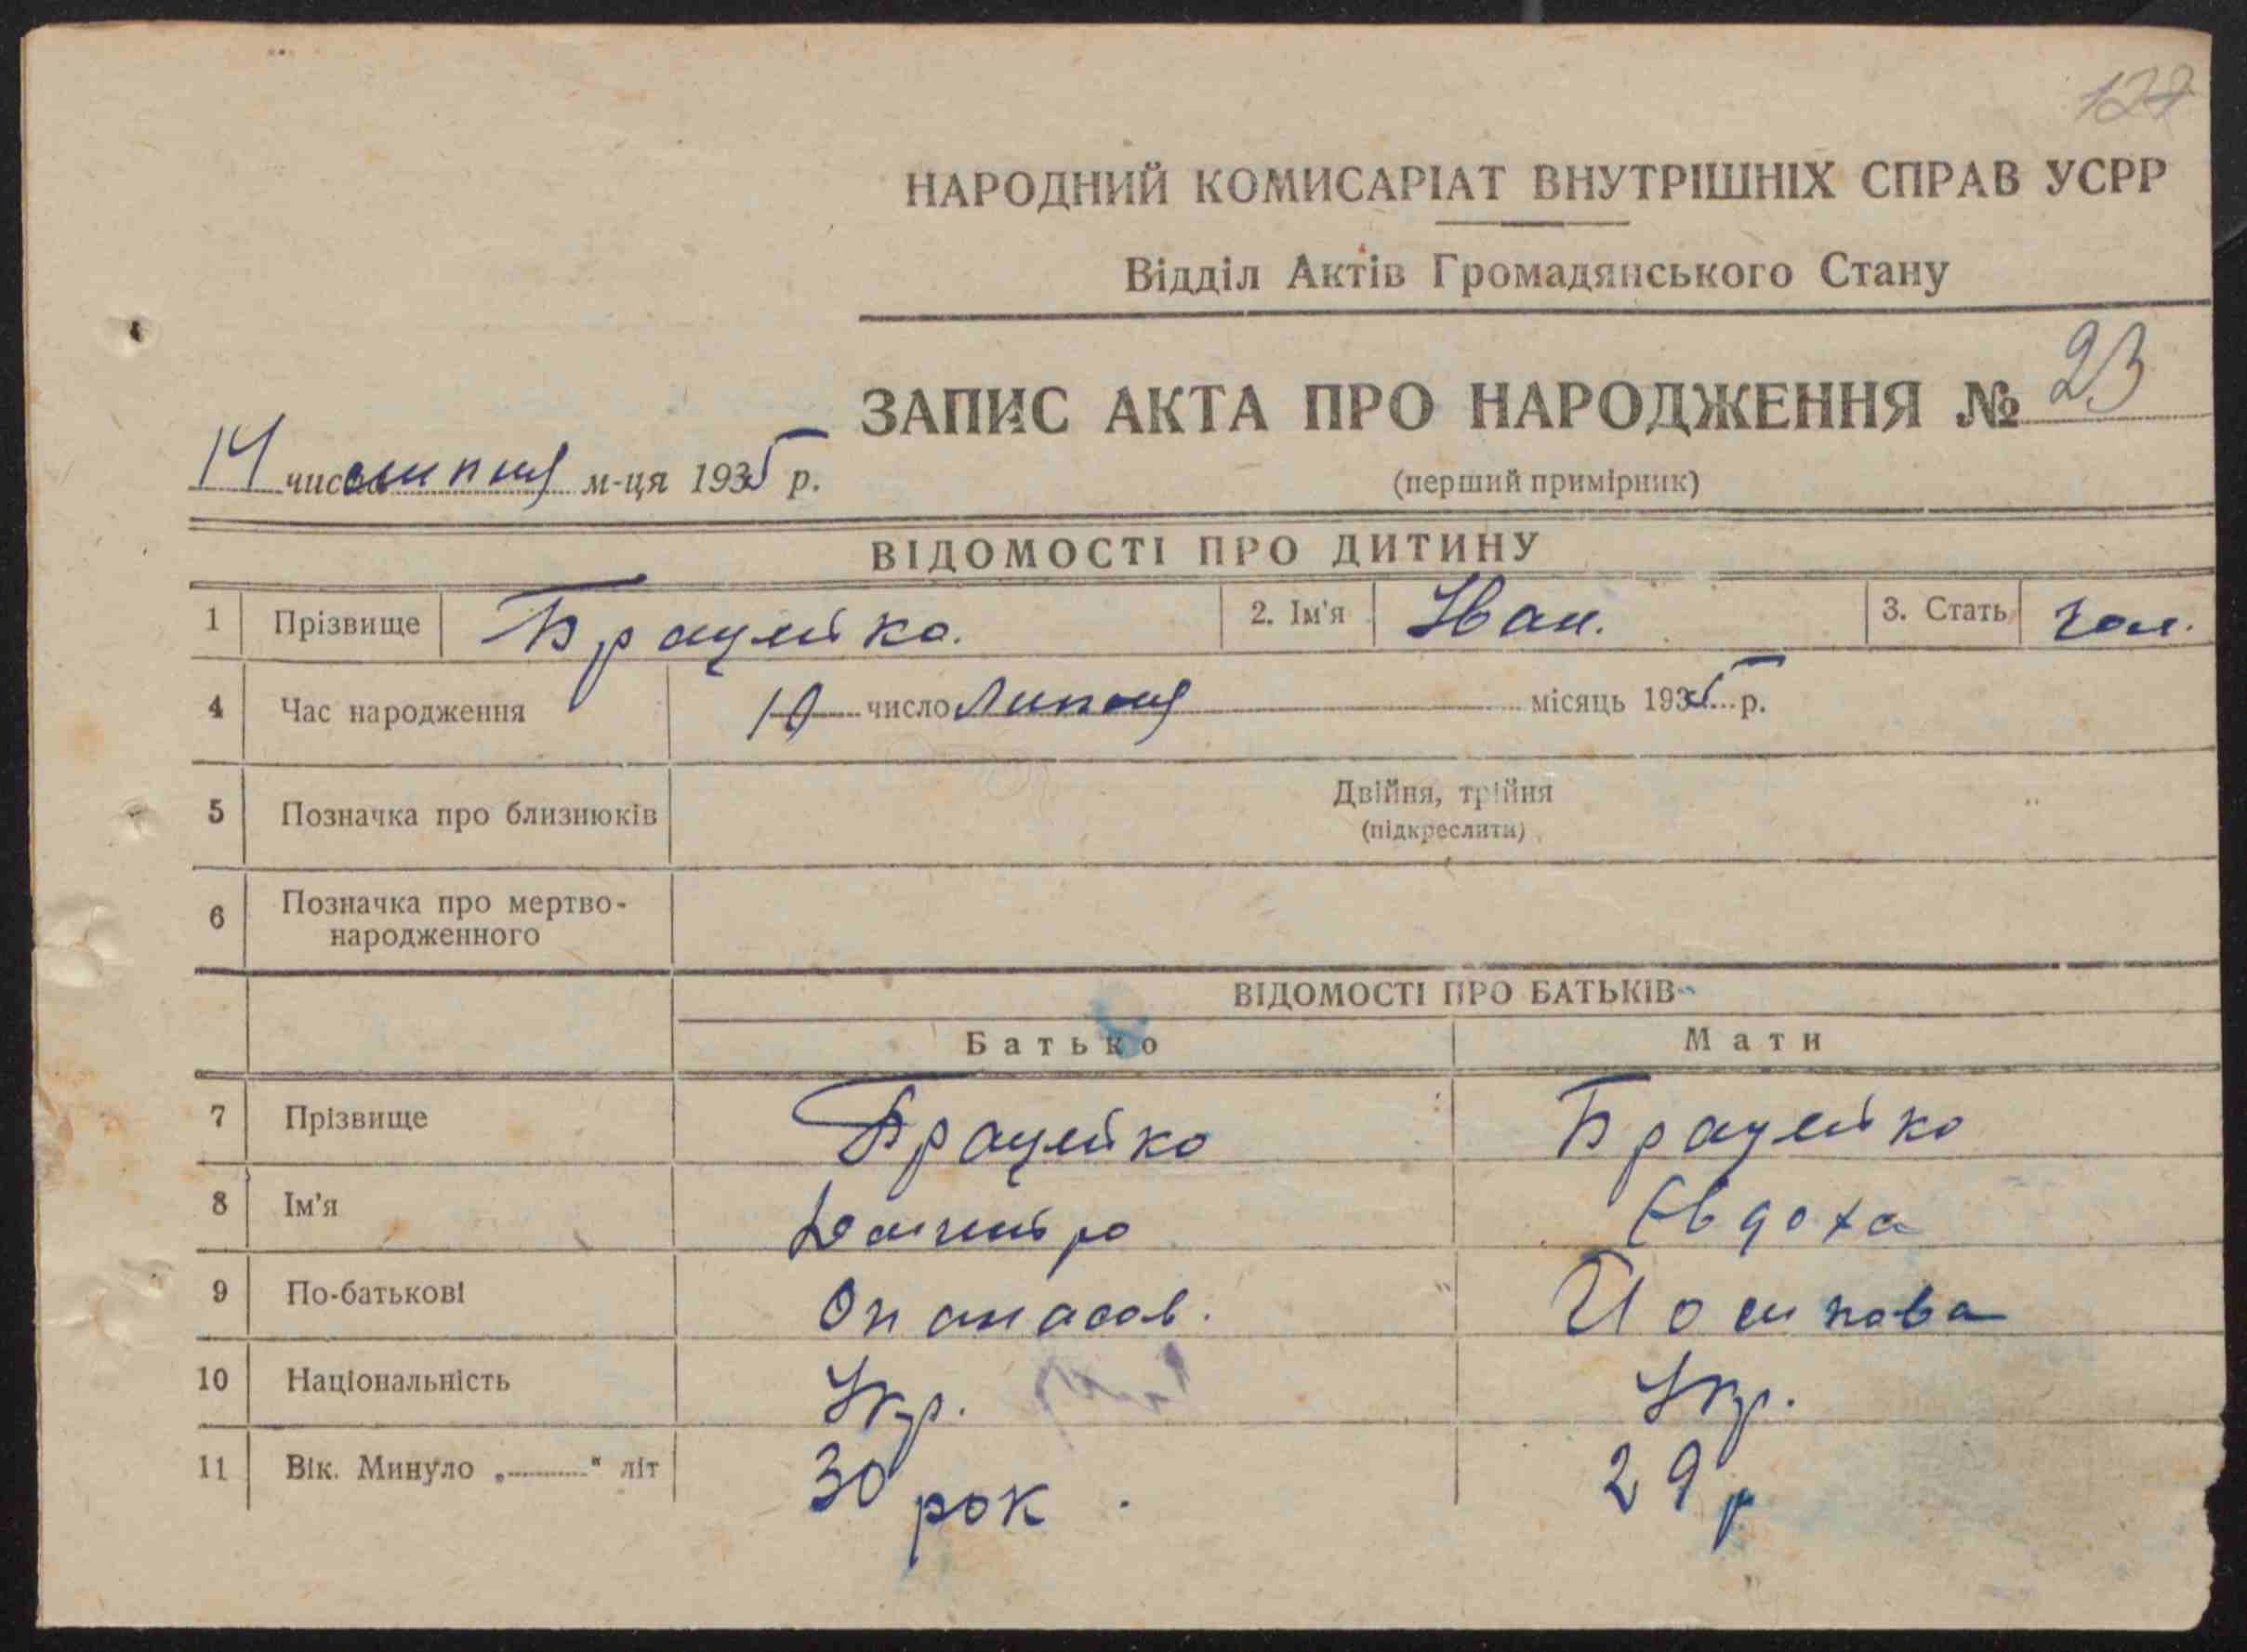 127
НАРОДНИЙ КОМИСАРІАТ ВНУТРІШНІХ СПРАВ УСРР
Відділ Актів Громадянського Стану
ЗАПИС АКТА ПРО НАРОДЖЕННЯ № 23
14 числа липня м-ця 1935 р.
(перший примірник)
ВІДОМОСТІ ПРО ДИТИНУ
1 Прізвище Брацейко. 2. Ім'я Иван. 3. Стать чол.
4 Час народження 10 число Липня місяць 1935 р.
5 Позначка про близнюків Двійня, трійня
(підкреслити)
6 Позначка про мертво-
народженного
ВІДОМОСТІ ПРО БАТЬКІВ
Батько Мати
7 Прізвище Брацейко Брацейко
8 Ім'я Дмитро Євдоха
9 По-батькові Опанасов. Йосипова
10 Національність Укр. Укр.
11 Вік. Минуло „ “ літ 30 рок. 29 р